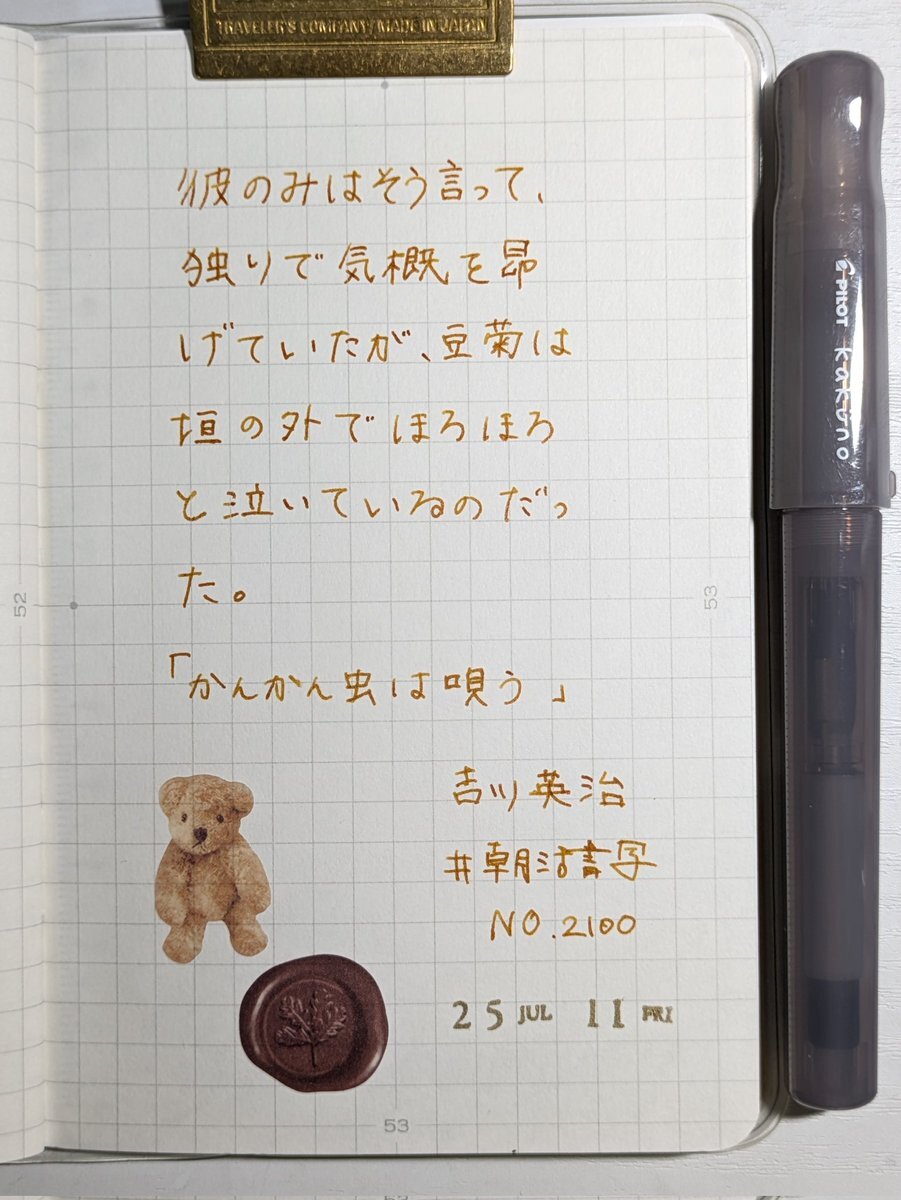 TRAVELER'S COMPANY/MADE IN JAPAN
彼のみはそう言って、
独りで気概を昂
げていたが、豆菊は
垣の外でほろほろ
と泣いているのだっ
た。
「かんかん虫は唄う」
吉川英治
#朝活書写
NO.2100
25 JUL 11 FRI
52
53
53
PILOT kakuno